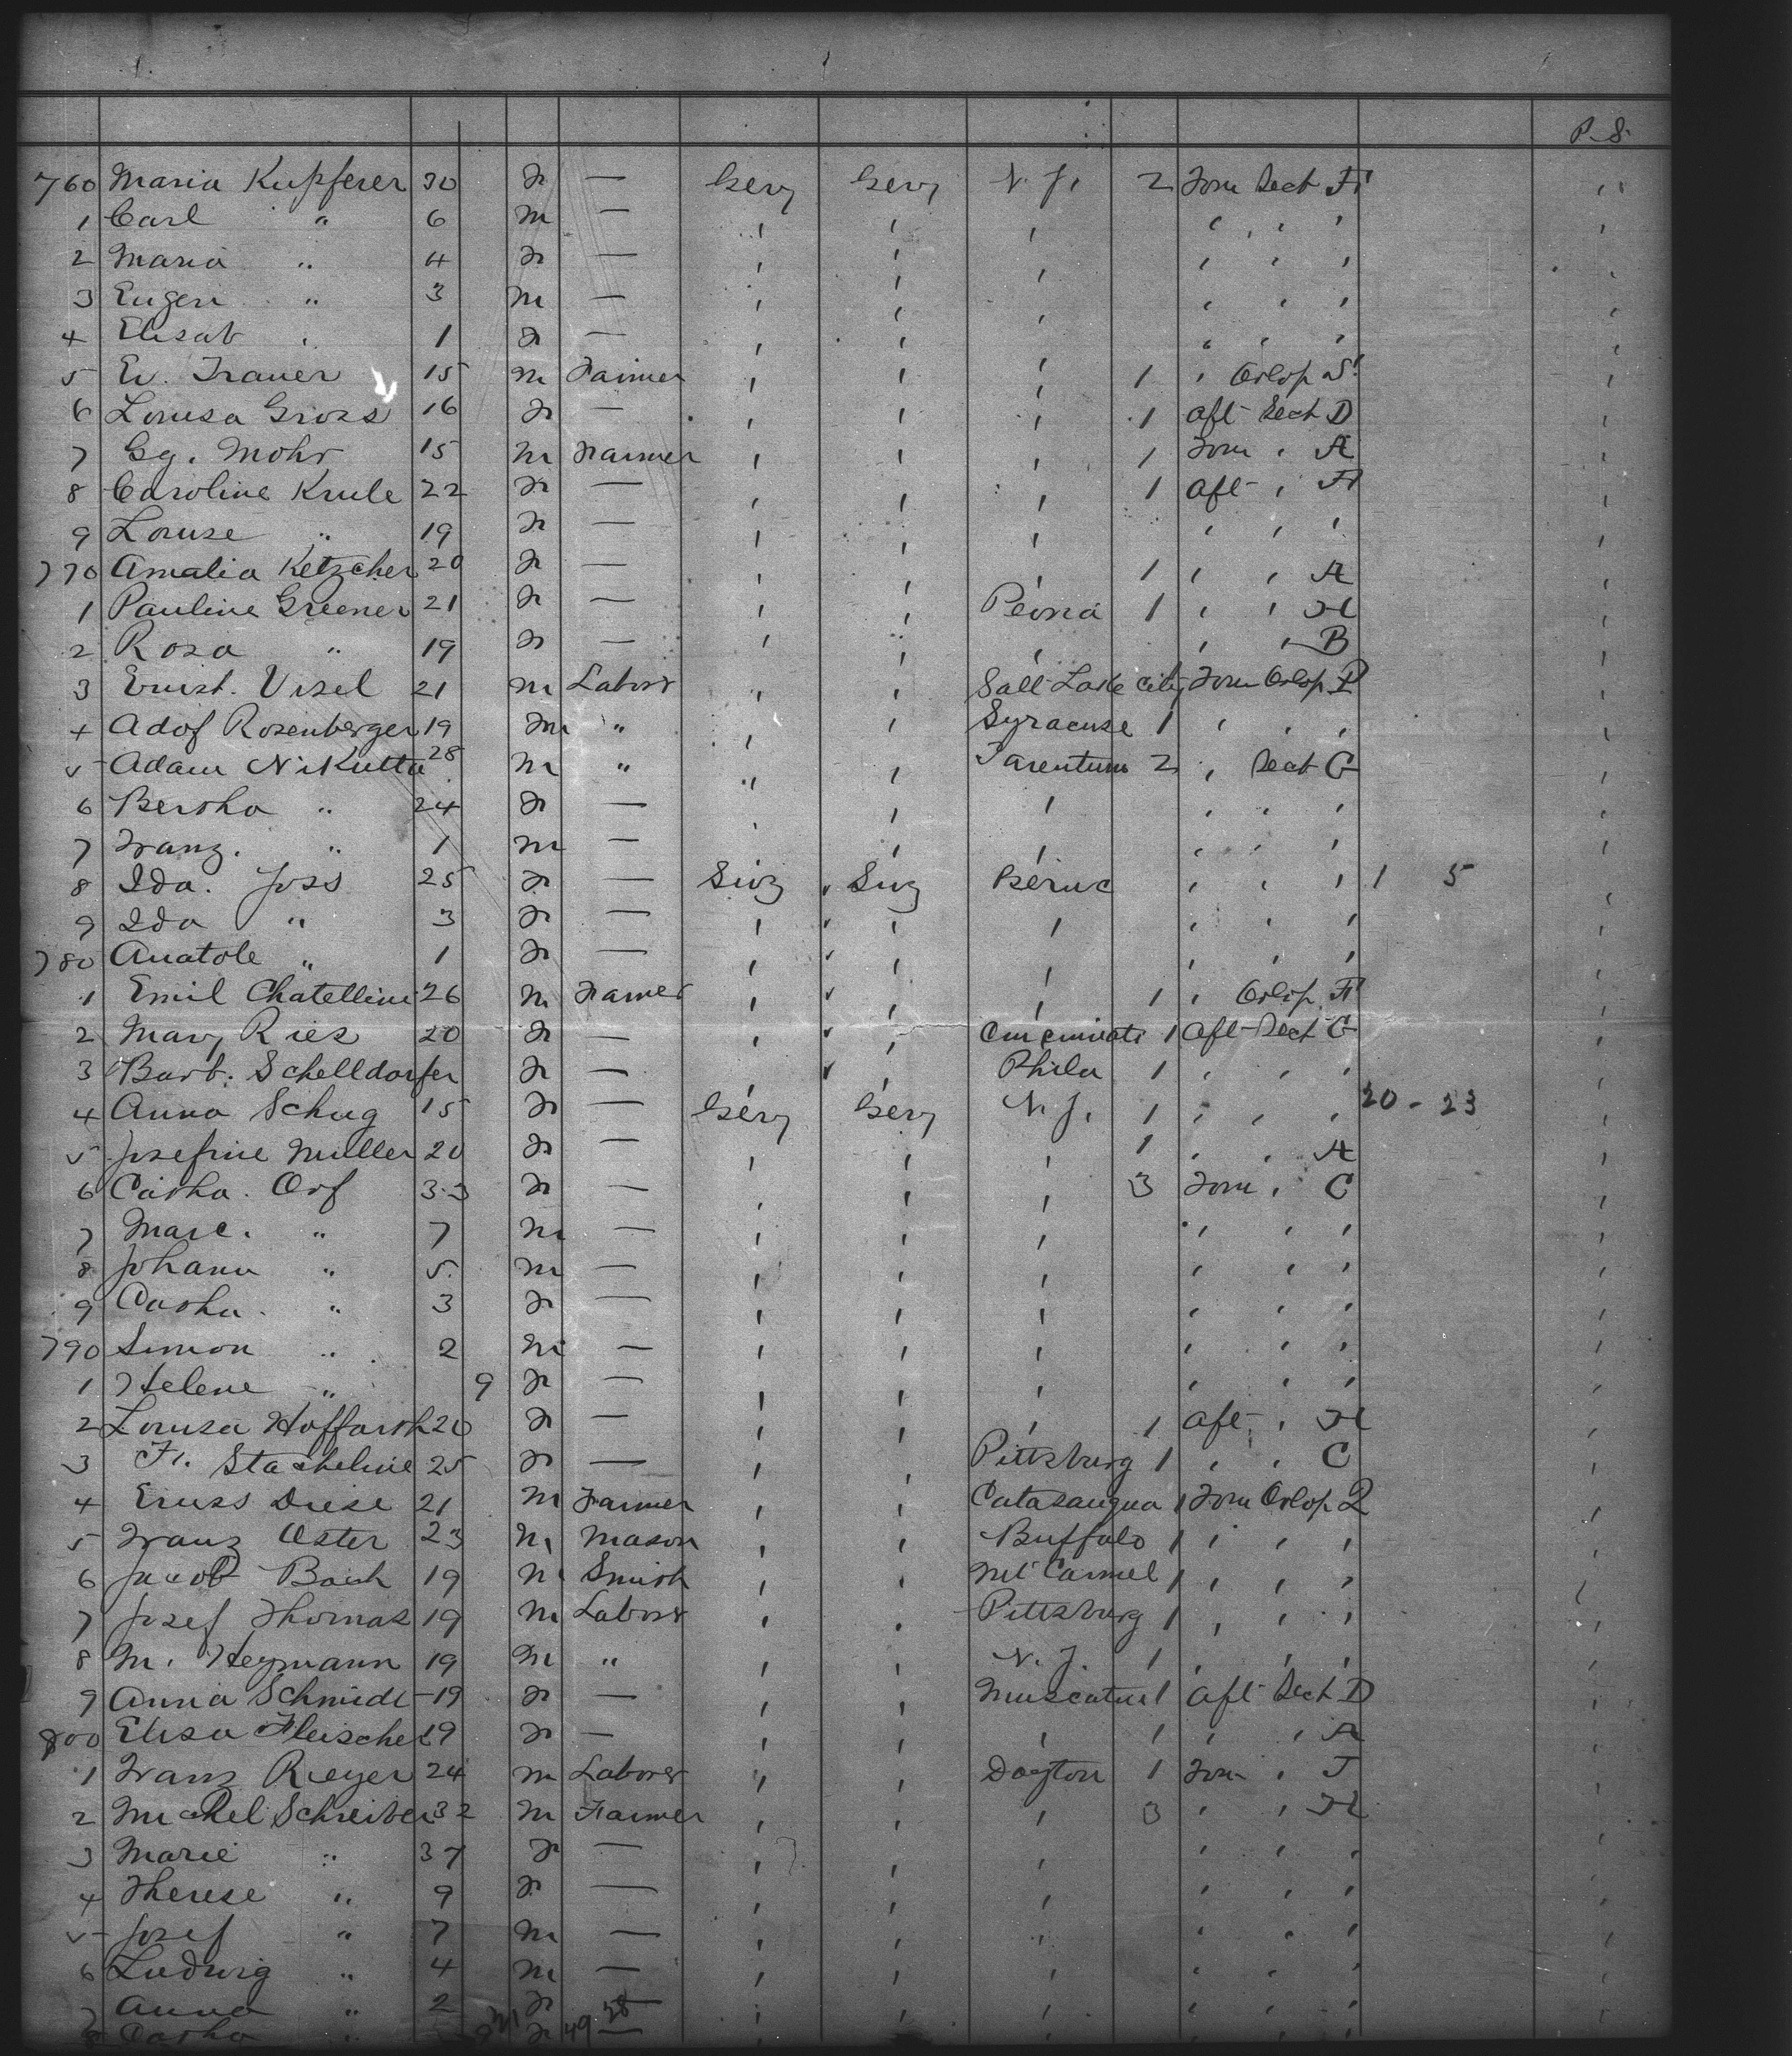 P. S.
760 Maria Kupferer 30 F — Gery Gery N. Y. 2 Forw Sect F "
1 Carl " 6 m — " " " " " " "
2 Maria " 4 F — " " " " " " "
3 Eugen " 3 m — " " " " " " "
4 Elisab " 1 F — " " " " " " "
5 Ev. Trauer 15 m Farmer " " " 1 " Orlop S "
6 Louisa Gross 16 F — " " " 1 Aft Sect D "
7 Gg. Mohr 15 m Farmer " " " 1 Forw " A "
8 Caroline Krule 22 F — " " " 1 Aft " F "
9 Louise " 19 F — " " " " " " "
770 Amalia Ketzcher 20 F — " " " 1 " " A "
1 Pauline Greener 21 F — " " Peoria 1 " " H "
2 Rosa " 19 F — " " " " " B "
3 Ernst. Visel 21 m Labor " " Salt Lake City Forw Orlop "
4 Adof Rosenberger 19 m " " " Syracuse 1 " " " "
5 Adam Nikutta 28 m " " " Tarentum 2 " Sect G "
6 Bertha " 24 F — " " " " " " "
7 Franz. " 1 m — " " " " " " "
8 Ida. Joss 25 F — Swz Swz Berne " " " 1 5 "
9 Ida " 3 F — " " " " " " "
780 Anatole " 1 F — " " " " " " "
1 Emil Chatellini 26 m Farmer " " " 1 " Orlop F "
2 Mary Ries 20 F — " " Cincinnati 1 Aft Sect G "
3 Barb. Schelldorfer F — " " Phila 1 " " " "
4 Anna Schug 15 F — Gery Gery N. Y. 1 " " " 20 - 23 "
5 Josefine Muller 20 F — " " " 1 " " A "
6 Catha. Orf 33 F — " " " 3 Forw " C "
7 Marc. " 7 m — " " " " " " "
8 Johann " 5. m — " " " " " " "
9 Catha. " 3 F — " " " " " " "
790 Simon " 2 m — " " " " " " "
1 Helene " 9 F — " " " " " " "
2 Louisa Hoffarth 20 F — " " " 1 Aft " H "
3 Fr. Stacheline 25 F — " " Pittsburg 1 " " C "
4 Eruss Diese 21 m Farmer " " Catasauqua 1 Forw Orlop 2 "
5 Franz Oster 23 m Mason " " Buffalo 1 " " " "
6 Jacob Bach 19 m Smith " " Mt Carmel 1 " " " "
7 Josef Thomas 19 m Labor " " Pittsburg 1 " " " "
8 M. Heymann 19 m " " " N. Y. 1 " " " "
9 Anna Schmidt 19 F — " " Muscatine 1 Aft Sect D "
800 Elisa Fleischer 19 F — " " " 1 " " A "
1 Franz Rieger 24 m Laborer " " Dayton 1 Forw " J "
2 Michel Schreiber 32 m Farmer " " " 3 " " H "
3 Marie " 37 F — " " " " " " "
4 Therese " 9 F — " " " " " " "
5 Josef " 7 m — " " " " " " "
6 Ludwig " 4 m — " " " " " " "
7 Anna " 2 F — " " " " " " "
8 Catha " 9 F — " " " " " " "
21 49 28